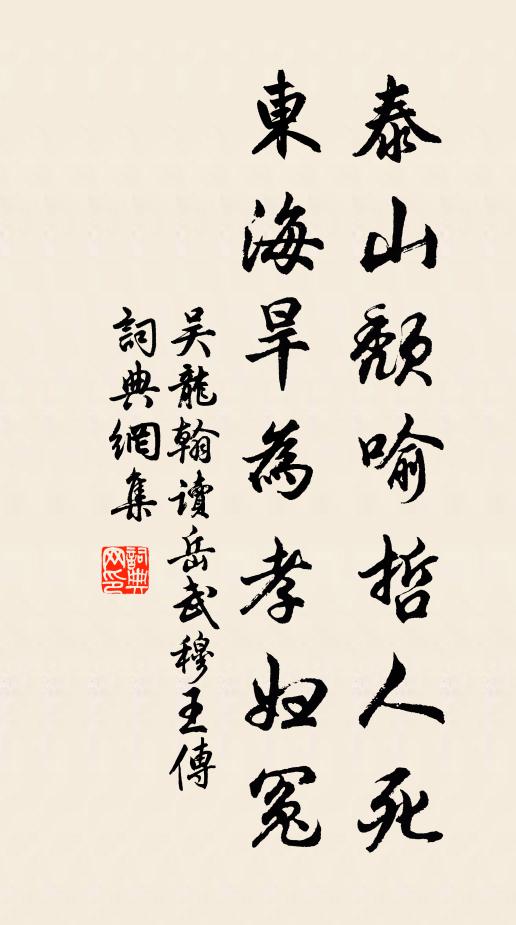 泰山頹喻哲人死
東海旱為孝婦冤
吴龍翰讀岳武穆王傳
詞典網集
詞典网印